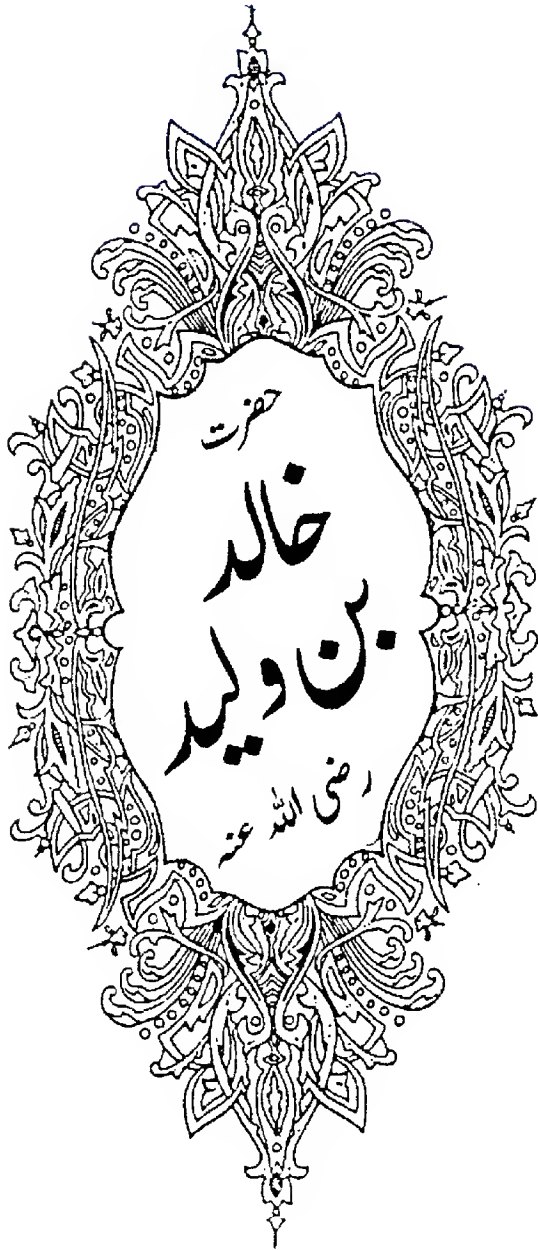 حضرت
خالد
بن ولید
رضی اللہ عنہ